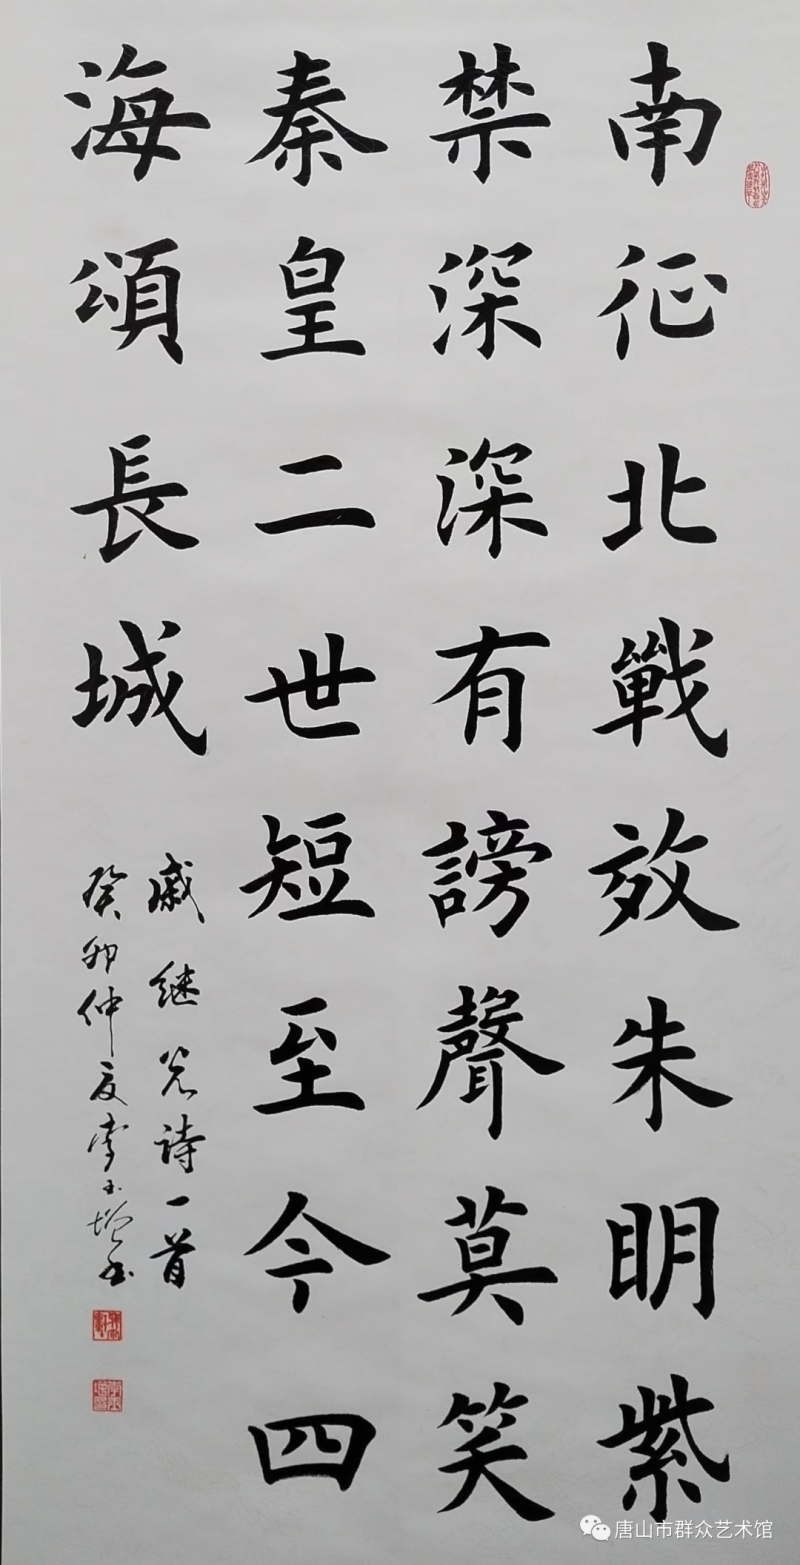 南征北戰效朱明紫
禁深深有謗聲莫笑
秦皇二世短至今四
海頌長城
戚继光诗一首
癸卯仲夏李玉增书
唐山市群众艺术馆